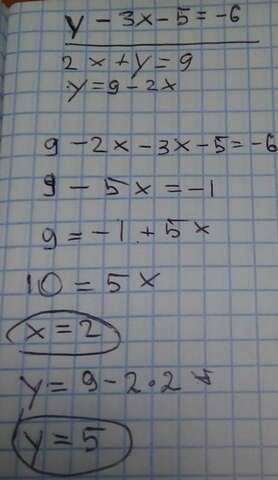 y - 3x - 5 = -6
2x + y = 9
y = 9 - 2x
9 - 2x - 3x - 5 = -6
9 - 5x = -1
9 = -1 + 5x
10 = 5x
x = 2
y = 9 - 2·2
y = 5